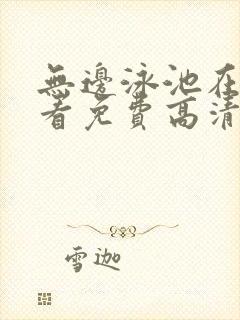 無邊泳池在
看免費高清
雪迦